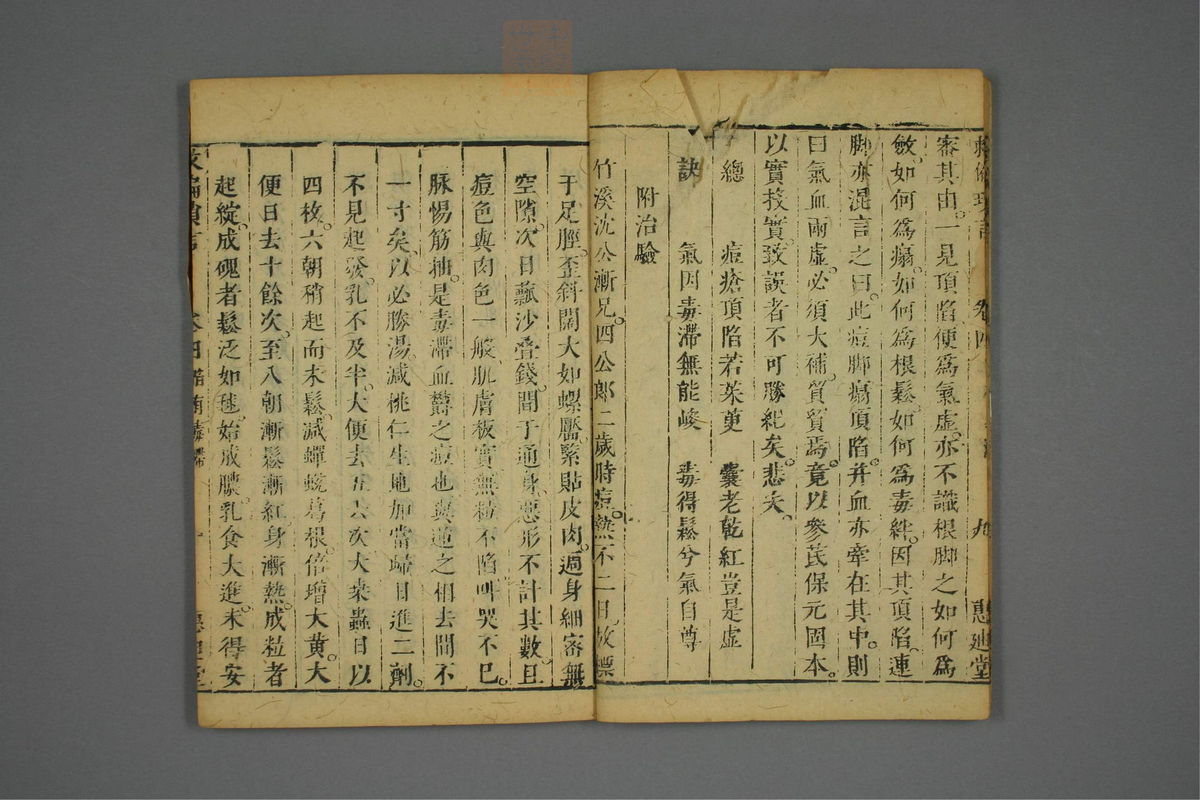 卷四 九 惠廸堂
審其由。一見頂陷便爲氣虛。亦不識根脚之如何爲
斂。如何爲癟。如何爲根鬆。如何爲毒絆。因其頂陷。連
脚亦混言之曰。此痘脚癟頂陷。并血亦牽在其中。則
曰氣血兩虛。必須大補。貿貿焉。竟以參芪保元固本。
以實投實。致誤者不可勝紀矣。悲夫。
總 痘瘡頂陷若茱萸 囊老乾紅豈是虛
訣 氣因毒滯無能峻 毒得鬆兮氣自尊
附治驗
竹溪沈公漸兄。四公郎二歲時痘。熱不二日。放標
于足脛。歪斜闊大如螺靨。緊貼皮肉。遍身細密無
空隙。次日瓢沙疊錢。間于通身。惡形不計其數。且
痘色與肉色一般。肌膚板實。無粒不陷。叫哭不已。
脉惕筋抽。是毒滯血欝之痘也。與逆之相去間不
一寸矣。以必勝湯。減桃仁生地加當歸。日進二劑。
不見起發。乳不及半。大便去五六次。大桑蟲日以
四枚。六朝稍起而未鬆。減蟬蛻葛根。倍增大黃。大
便日去十餘次。至八朝漸鬆漸紅。身漸熱。成粒者
起綻。成磈者鬆泛如毬。始成膿。乳食大進。未得安